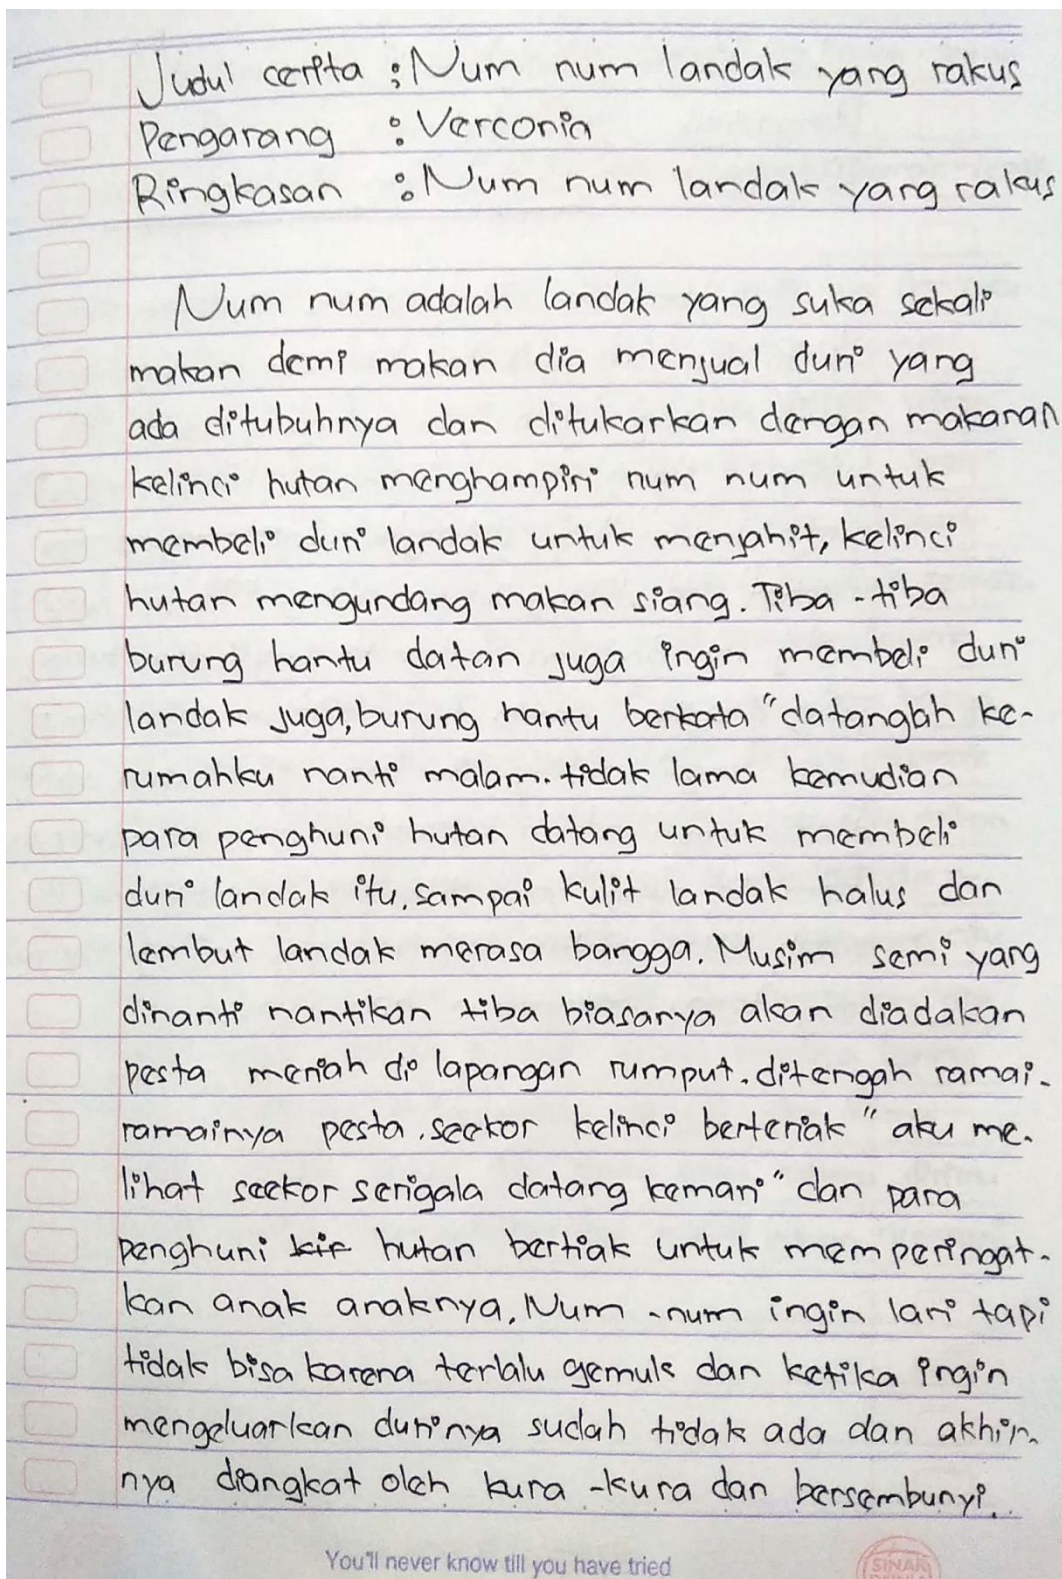 Judul cerita : Num num landak yang rakus
Pengarang : Verconia
Ringkasan : Num num landak yang rakus
Num num adalah landak yang suka sekali
makan demi makan dia menjual duri yang
ada ditubuhnya dan ditukarkan dengan makanan
kelinci hutan menghampiri num num untuk
membeli duri landak untuk menjahit, kelinci
hutan mengundang makan siang. Tiba - tiba
burung hantu datan juga ingin membeli duri
landak juga, burung hantu berkata "datanglah ke-
rumahku nanti malam. tidak lama kemudian
para penghuni hutan datang untuk membeli
duri landak itu. sampai kulit landak halus dan
lembut landak merasa bangga. Musim semi yang
dinanti nantikan tiba biasanya akan diadakan
pesta meriah di lapangan rumput. ditengah ramai-
ramainya pesta. seekor kelinci berteriak "aku me-
lihat seekor serigala datang kemari" dan para
penghuni hutan bertiak untuk memperingat-
kan anak anaknya. Num -num ingin lari tapi
tidak bisa karena terlalu gemuk dan ketika ingin
mengeluarkan durinya sudah tidak ada dan akhir-
nya diangkat oleh kura -kura dan bersembunyi..
You'll never know till you have tried
SINAR